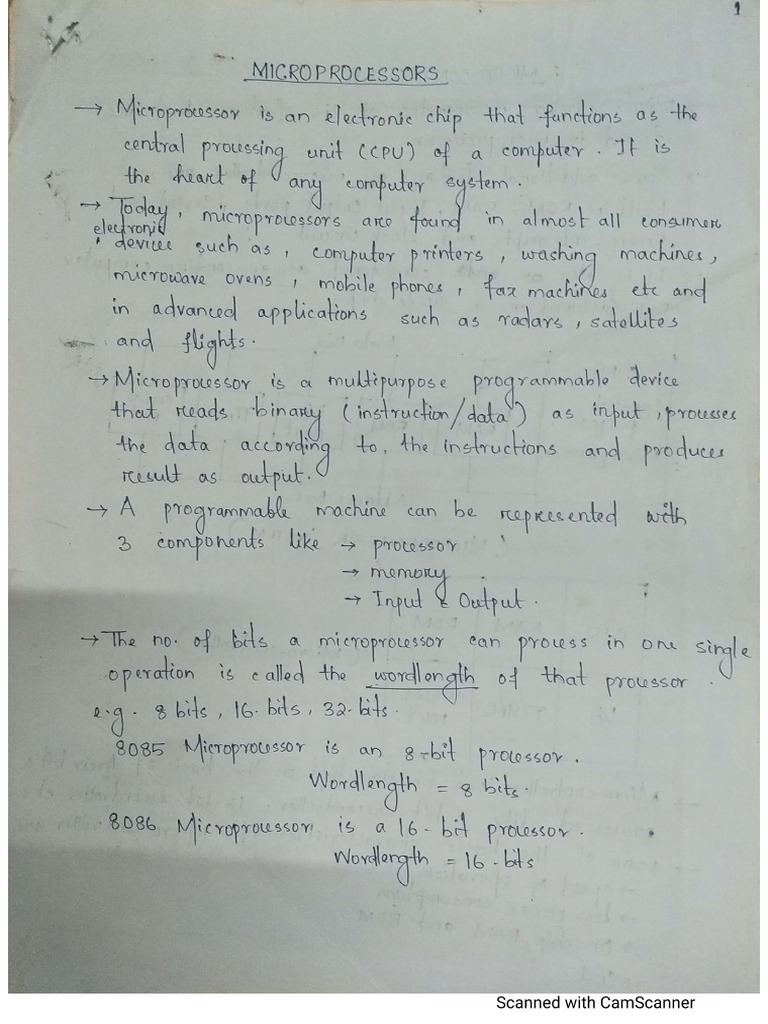 1
MICROPROCESSORS
→ Microprocessor is an electronic chip that functions as the
central processing unit (CPU) of a computer. It is
the heart of any computer system.
→ Today, microprocessors are found in almost all consumer
electronic
devices such as, computer printers, washing machines,
microwave ovens, mobile phones, fax machines etc and
in advanced applications such as radars, satellites
and flights.
→ Microprocessor is a multipurpose programmable device
that reads binary (instruction/data) as input, processes
the data according to the instructions and produces
result as output.
→ A programmable machine can be represented with
3 components like → processor
→ memory
→ Input & Output.
→ The no. of bits a microprocessor can process in one single
operation is called the wordlength of that processor.
e.g. 8 bits, 16-bits, 32-bits.
8085 Microprocessor is an 8-bit processor.
Wordlength = 8 bits.
8086 Microprocessor is a 16-bit processor.
Wordlength = 16-bits
Scanned with CamScanner